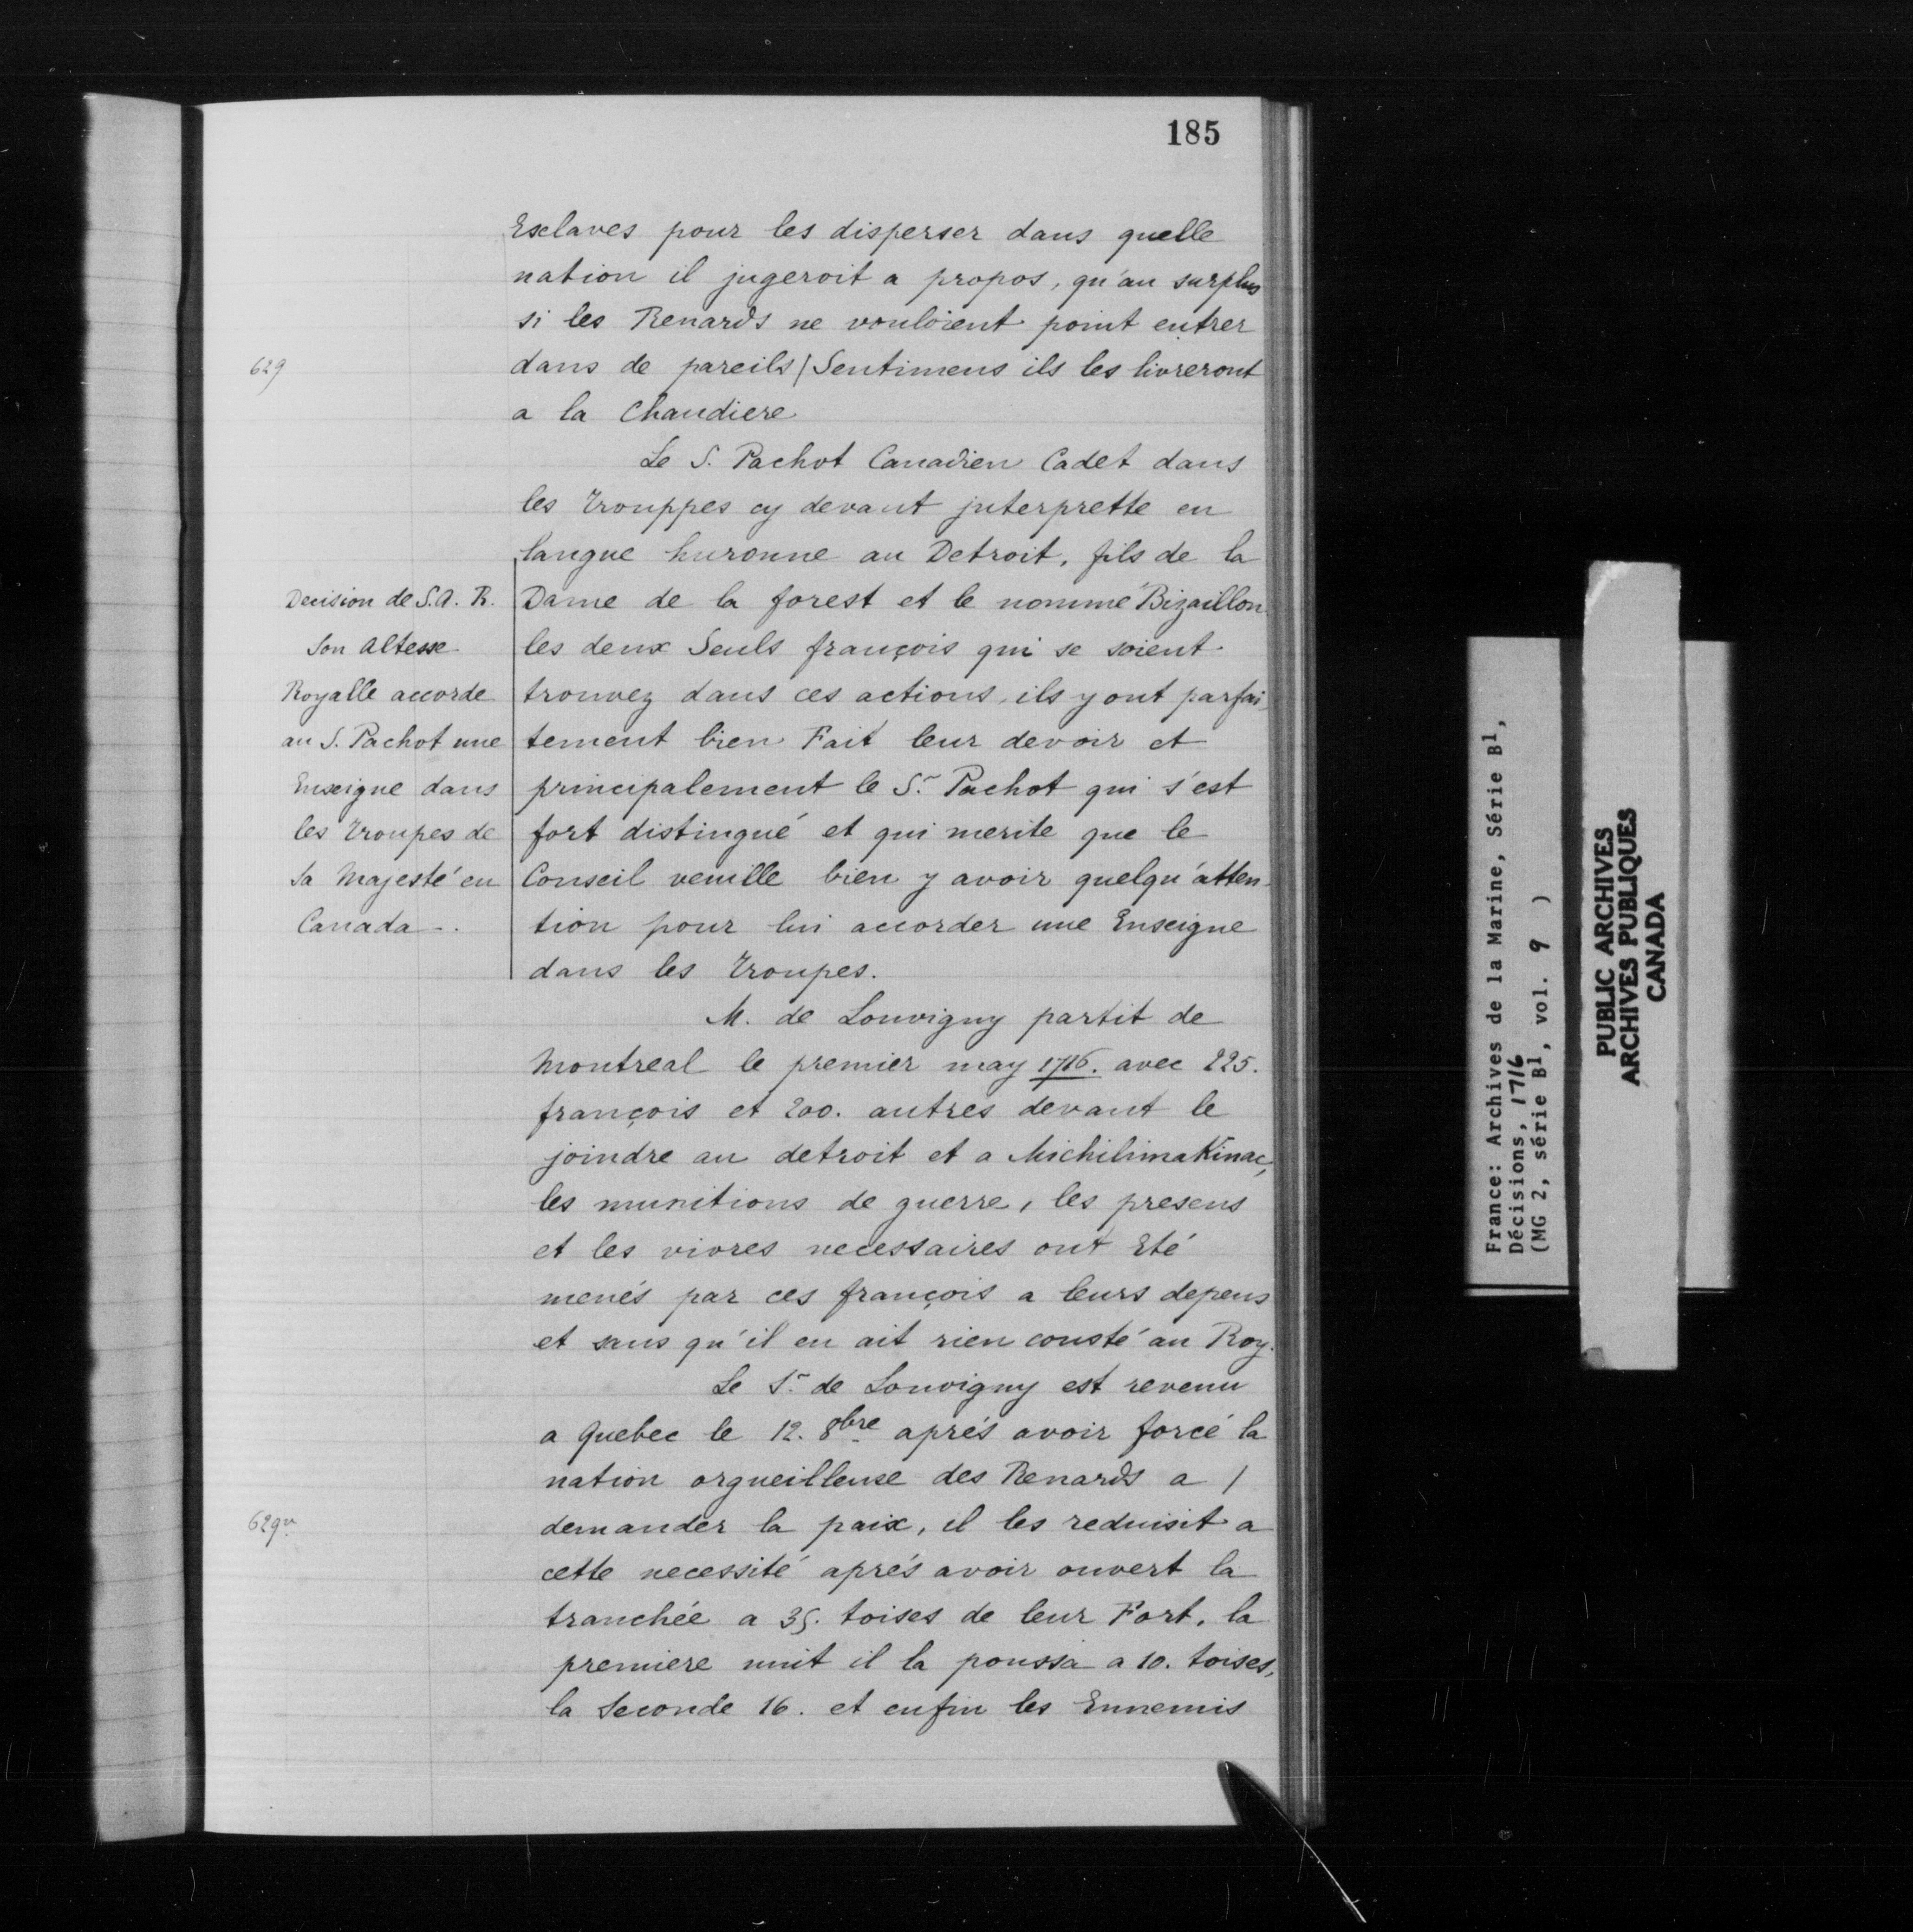 185
Esclaves pour les disperser dans quelle
nation il jugeroit a propos, qu'au surplus
si les Renards ne vouloient point entrer
629
dans de pareils / Sentimens ils les livreront
a la Chaudiere
Le S. Pachot Canadien Cadet dans
les trouppes cy devant jnterprette en
langue huronne au Detroit, fils de la
Dame de la forest et le nommé Bizaillon
les deux Seuls françois qui se soient
trouvez dans ces actions, ils y ont parfai-
tement bien Fait leur devoir et
principalement le Sr. Pachot qui s'est
fort distingué et qui merite que le
Conseil veuille bien y avoir quelqu'atten-
tion pour lui accorder une Enseigne
dans les troupes.
Decision de S.A.R.
Son altesse
Royalle accorde
au S. Pachot une
Enseigne dans
les troupes de
Sa Majesté en
Canada -.
M. de Louvigny partit de
Montreal le premier may 1716. avec 225.
françois et 200. autres devant le
joindre au detroit et a Michilimakinac,
les munitions de guerre, les presens
et les vivres necessaires ont Eté
menés par ces françois a leurs depens
et sans qu'il en ait rien cousté au Roy.
Le Sr. de Louvigny est revenu
a Quebec le 12. 8bre aprés avoir forcé la
nation orgueilleuse des Renards a /
629v
demander la paix, il les reduisit a
cette necessité aprés avoir ouvert la
tranchée a 35. toises de leur Fort, la
premiere nuit il la poussa a 10. toises,
la Seconde 16. et enfin les Ennemis
France: Archives de la Marine, Série B1,
Décisions, 1716
(MG 2, série B1, vol. 9 )
PUBLIC ARCHIVES
ARCHIVES PUBLIQUES
CANADA